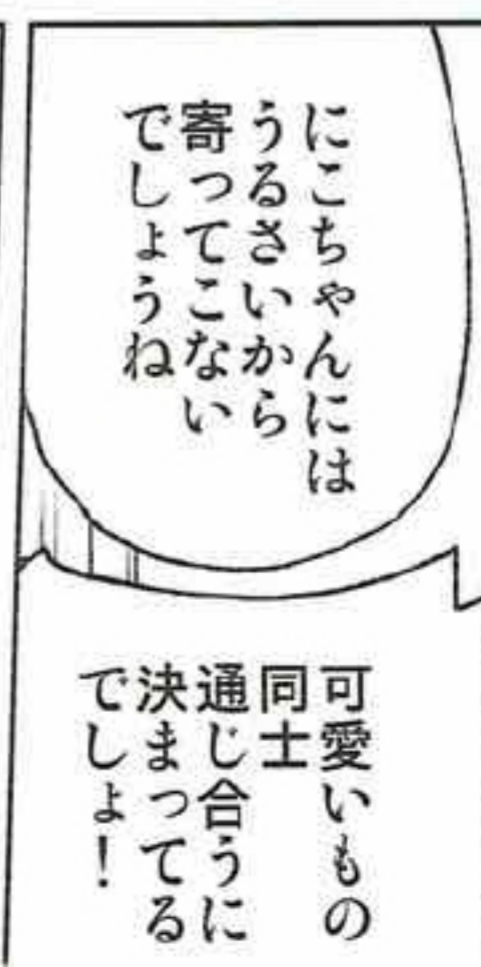 にこちゃんには
うるさいから
寄ってこない
でしょうね
可愛いもの
同士
通じ合うに
決まってる
でしょ！